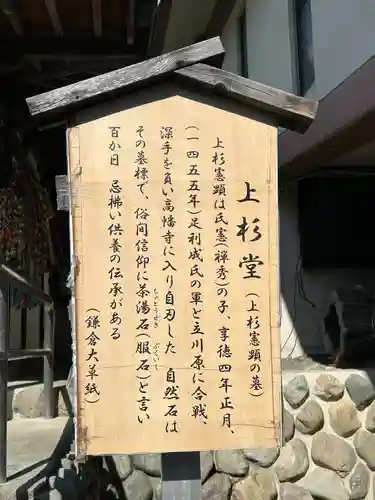 上杉堂(上杉憲顕の墓)
上杉憲顕は氏憲(禅秀)の子、享徳四年正月、
(一四五五年)足利成氏の軍と立川原に合戦、
深手を負い高幡寺に入り自刃した 自然石は
その墓標で、俗间信仰に茶湯石(服石)と言い
ちゃとうせき
ぶくいし
百か日 忌拂い供養の伝承がある
(鎌倉大草紙)